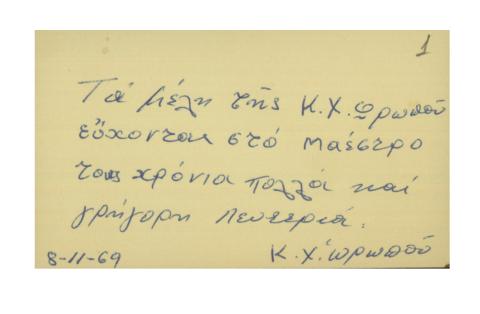 1
Τά μέλη τῆς Κ.Χ. Ὠρωποῦ
εὔχονται στό μαέστρο
τους χρόνια πολλά καί
γρήγορη λευτεριά.
Κ.Χ. Ὠρωποῦ
8-11-69